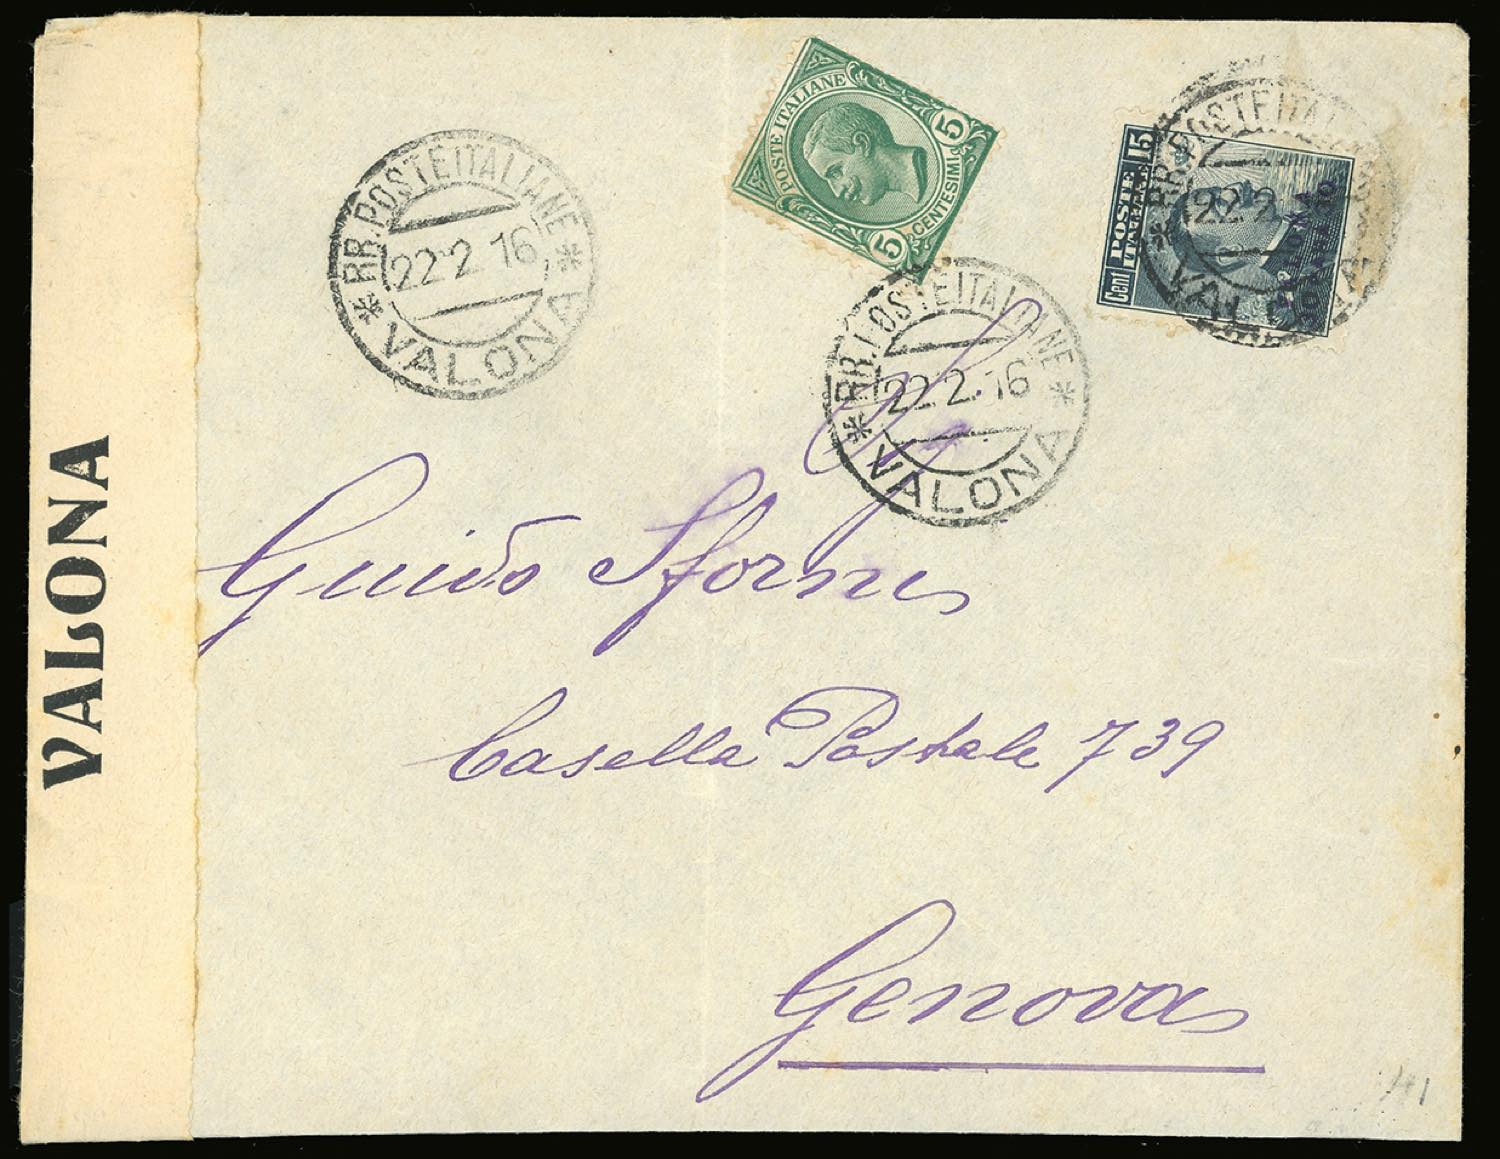 VALONA
RR. POSTE ITALIANE
22·2 16
* VALONA *
POSTE ITALIANE
5 5
CENTESIMI
RR. POSTE ITALIANE
22 2. 16
* VALONA *
Cent POSTE 15
ITALIANE
RR. POSTE ITAL
22 2
VAL
Guido Sforni
Casella Postale 739
Genova